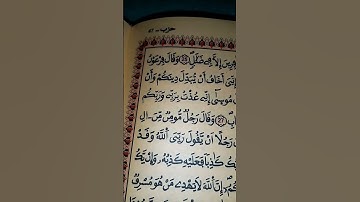 حزب
ـفِرِينَ إِلَّا فِي ضَلَٰلٍ ۝25 وَقَالَ فِرْعَوْنُ
إِنِّيَ أَخَافُ أَنْ يُّبَدِّلَ دِينَكُمْ وَأَنْ
مُوسَىٰ إِنِّي عُذْتُ بِرَبِّي وَرَبِّكُم
ـابِ ۝27 وَقَالَ رَجُلٌ مُّومِنٌ مِّنَ ـالِ
رَجُلًا أَنْ يَّقُولَ رَبِّيَ ٱللَّهُ وَقَدْ
ـكُ كَٰذِبًا فَعَلَيْهِ كَذِبُهُۥ وَإِنْ يَّكُ
ـكُمُۥ إِنَّ ٱللَّهَ لَا يَهْدِي مَنْ هُوَ مُسْرِفٌ